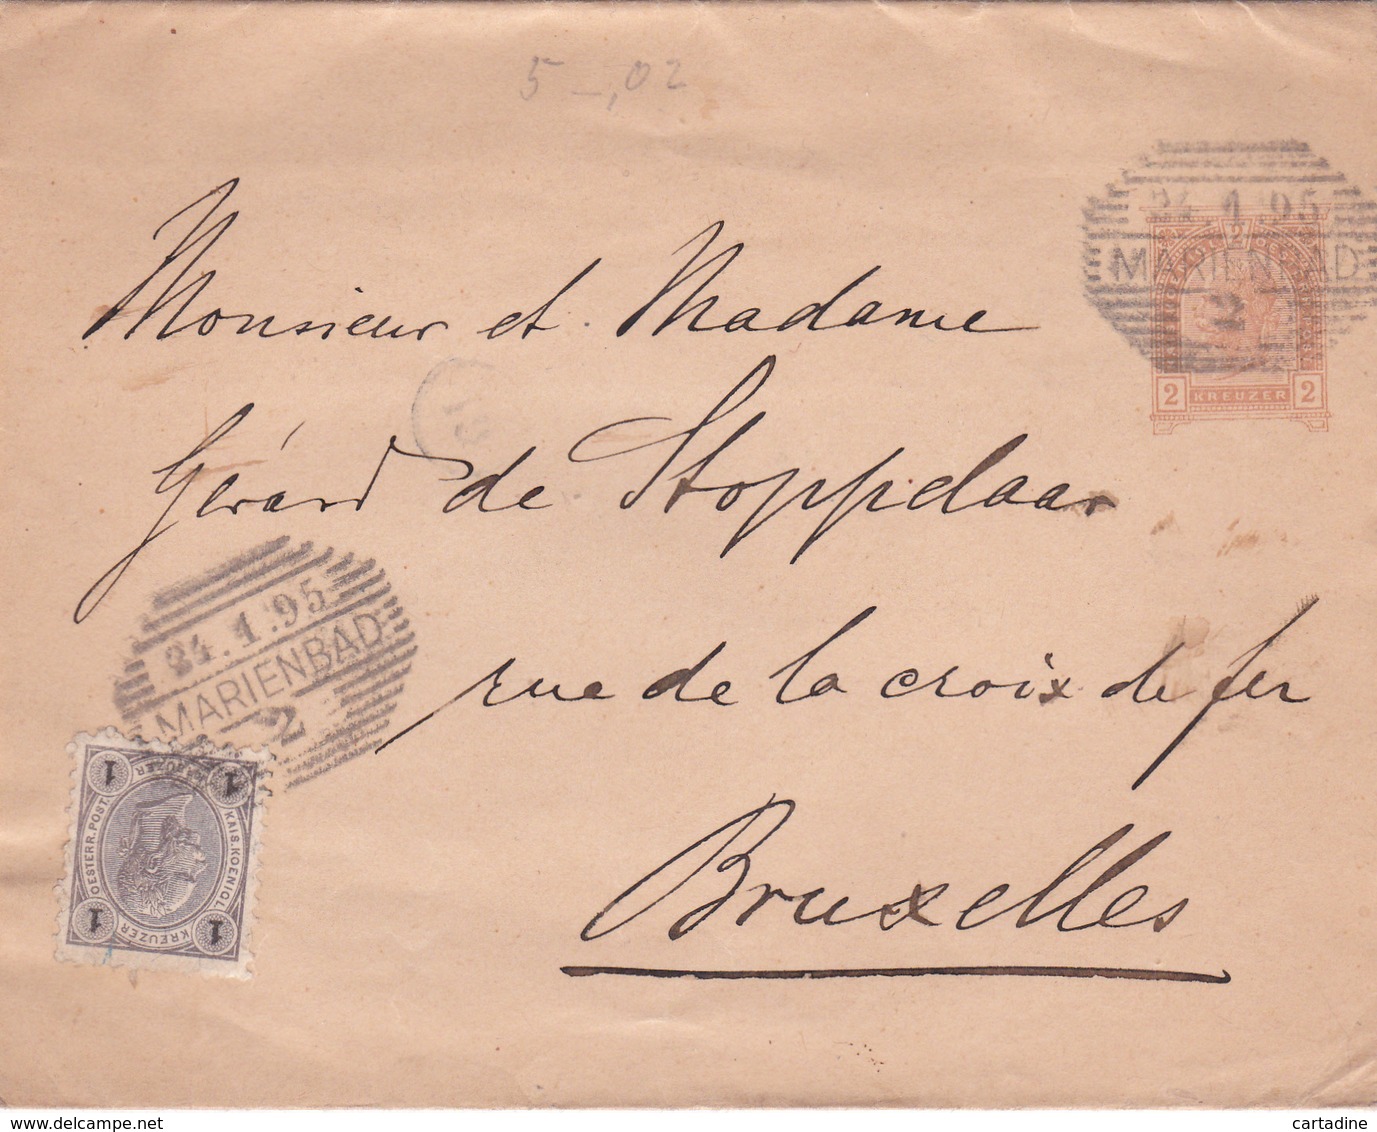 5 -,02
24.1.95
MARIENBAD
2
2
2 KREUZER 2
Monsieur et Madame
Gérard de Stoppelaar
rue de la croix de fer
Bruxelles
24.1.95
MARIENBAD
2
1 KREUZER 1
OESTERR. POST. KAIS. KOENIGL.
1 KREUZER 1
www.delcampe.net
cartadine